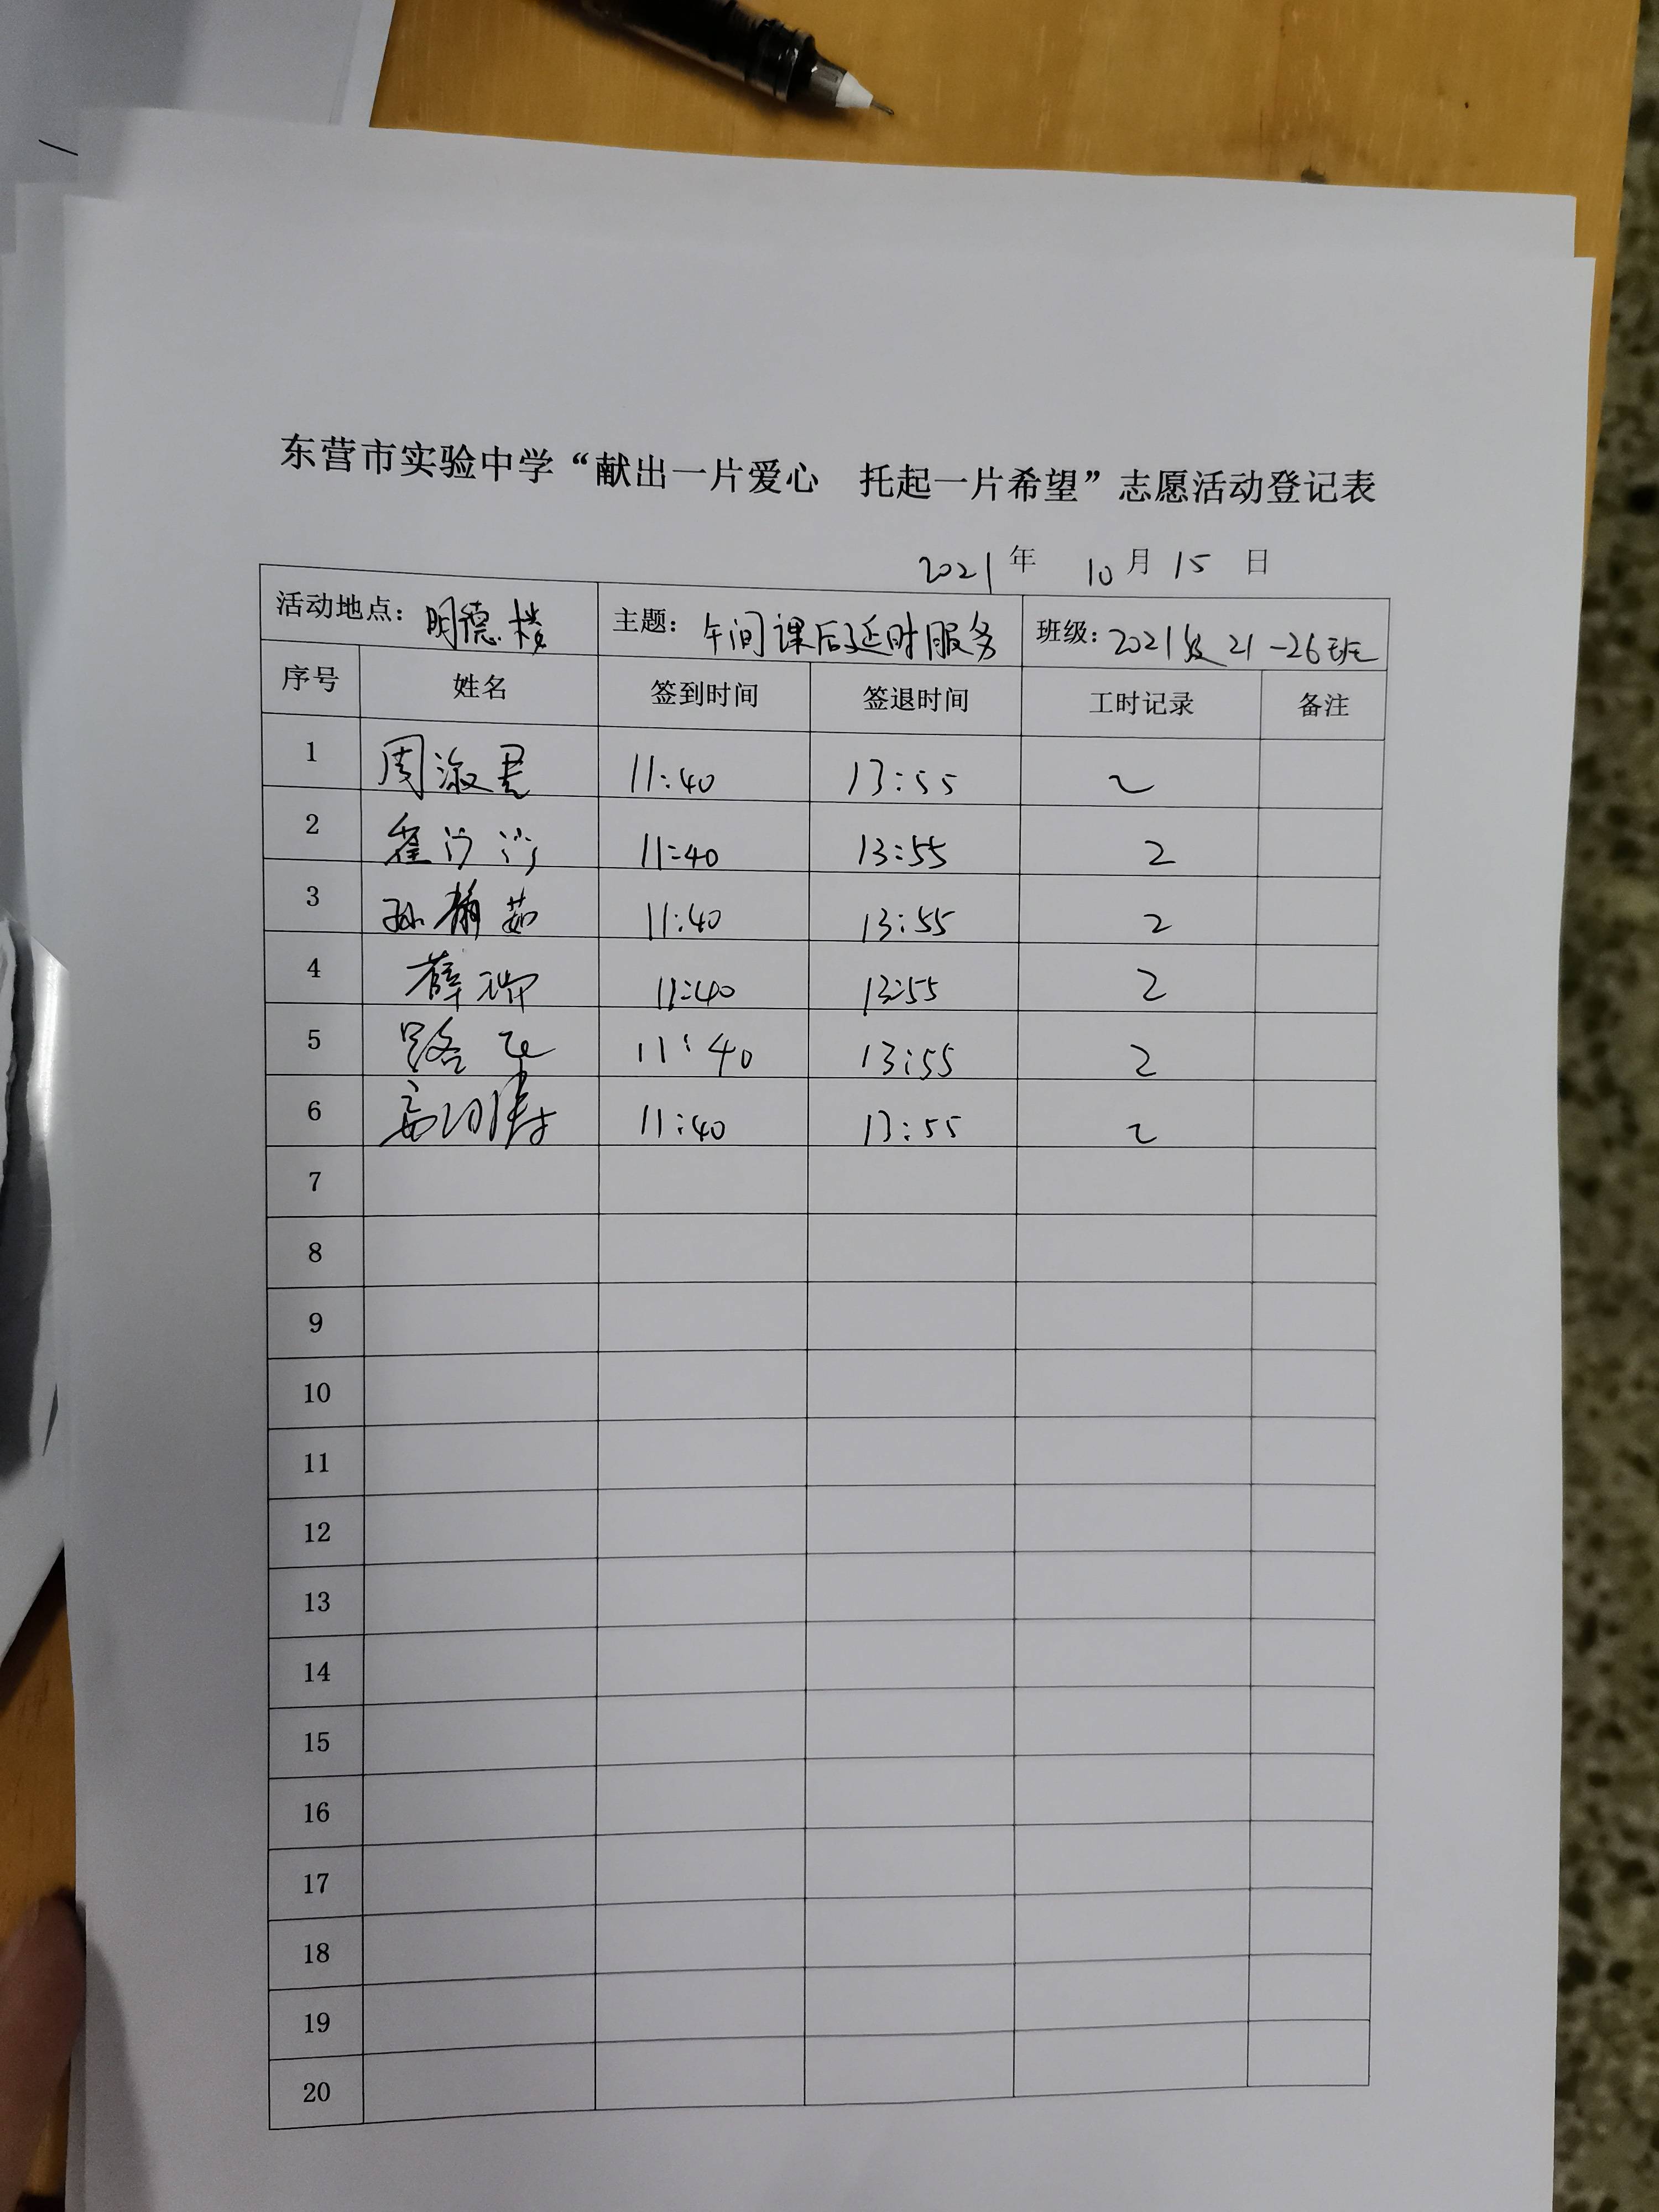 东营市实验中学“献出一片爱心 托起一片希望”志愿活动登记表
2021年 10月15日
活动地点：明德楼 主题：午间课后延时服务 班级：2021级21-26班
序号 姓名 签到时间 签退时间 工时记录 备注
1 周淑君 11:40 13:55 2
2 霍 11:40 13:55 2
3 孙静茹 11:40 13:55 2
4 薛 11:40 13:55 2
5 路 11:40 13:55 2
6 11:40 13:55 2
7
8
9
10
11
12
13
14
15
16
17
18
19
20